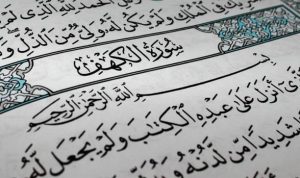 الحمد لله الذى
فِى ٱلْمُلْكِ وَلَمْ يَكُن لَّهُۥ وَلِىٌّ مِّنَ ٱلذُّلِّ
سُورَةُ الكَهْفِ
بِسْمِ اللَّهِ الرَّحْمَٰنِ الرَّحِيمِ
أَنزَلَ عَلَىٰ عَبْدِهِ ٱلْكِتَٰبَ وَلَمْ يَجْعَل لَّهُۥ
شَدِيدًا مِّن لَّدُنْهُ